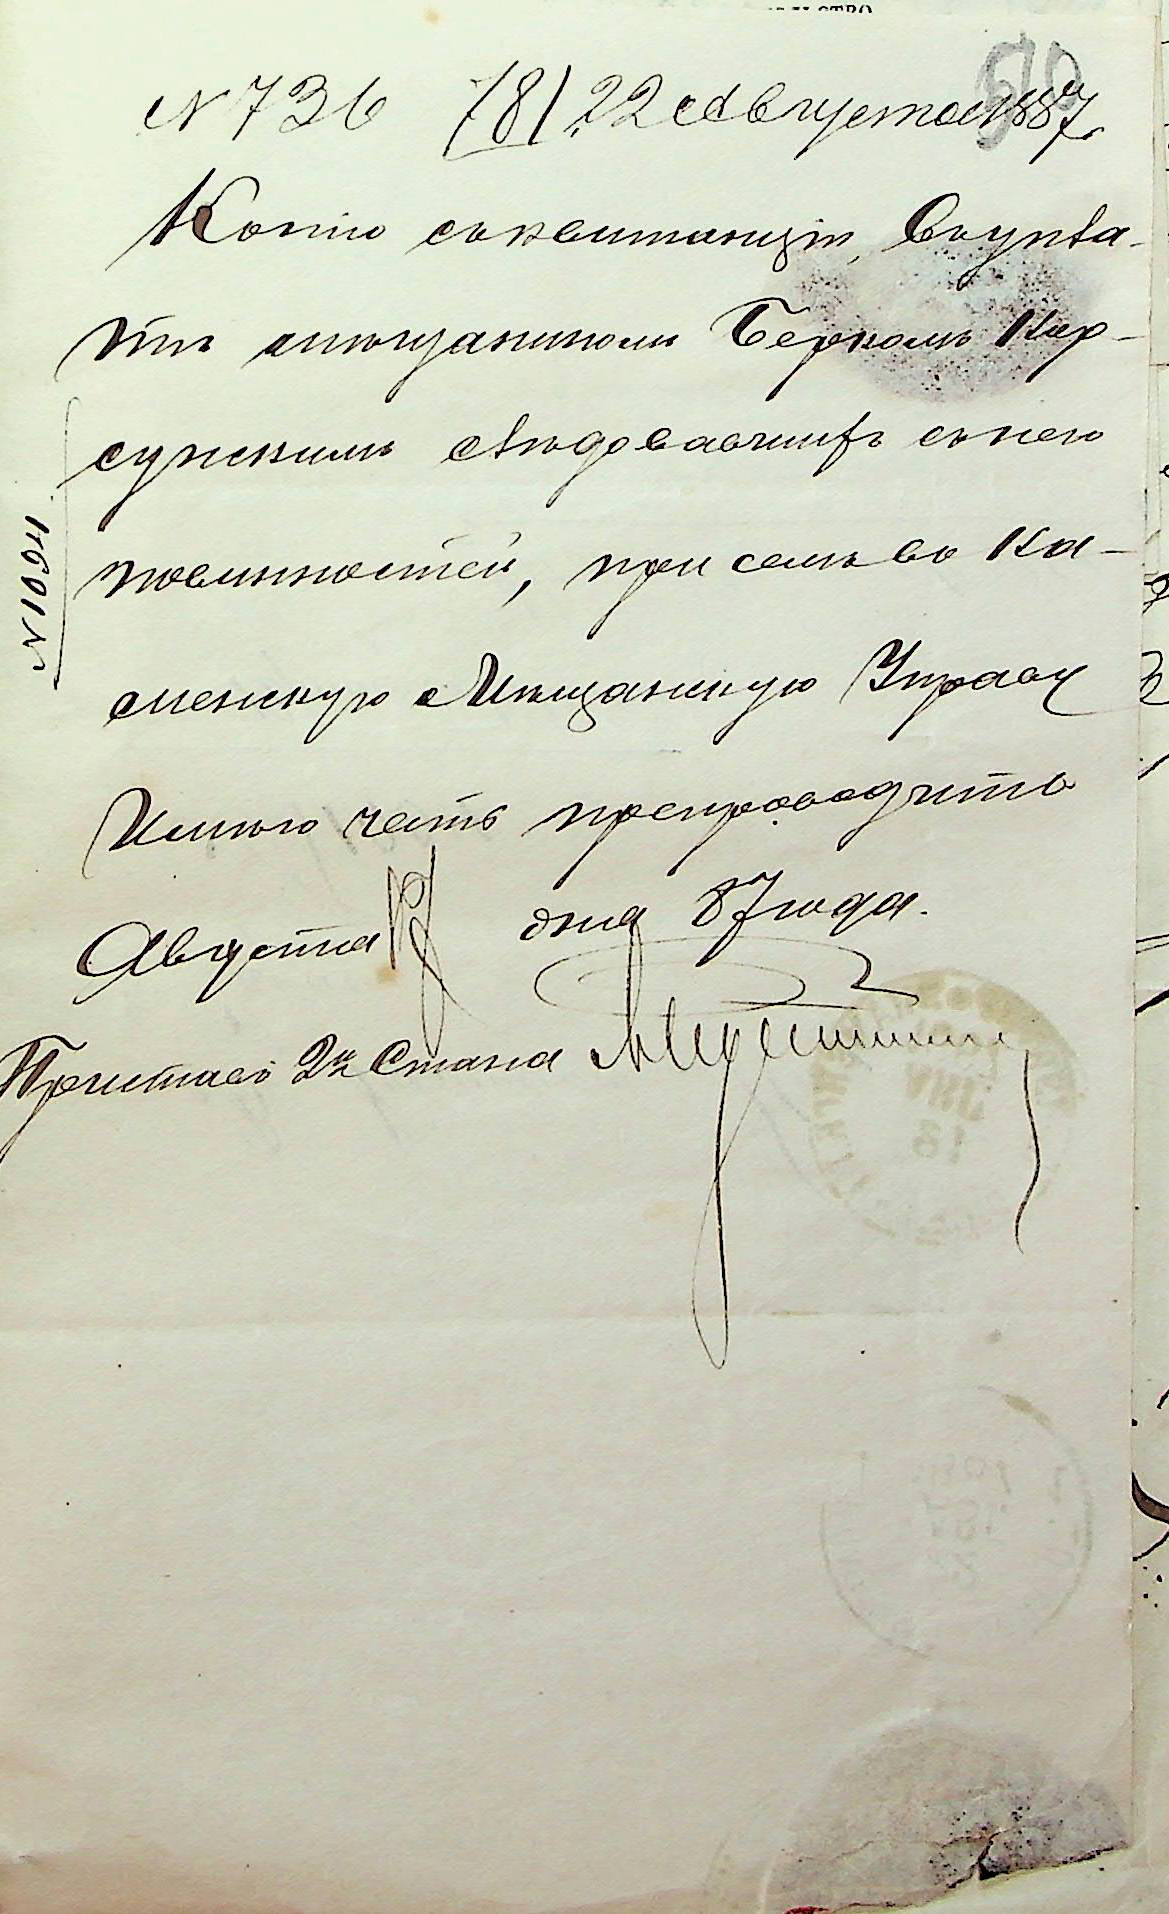 № 736 /8/ 22 Августа 1887
Копію съ квитанціи, въ упла-
тѣ мѣщаниномъ Беркомъ Кор-
сунскимъ слѣдовавшихъ съ него
повинностей, при семъ въ Ка-
менскую Мѣщанскую Управу
Имѣю честь препроводить
Августа 19 дня 87 года.
Приставъ 2го Стана
№ 1094